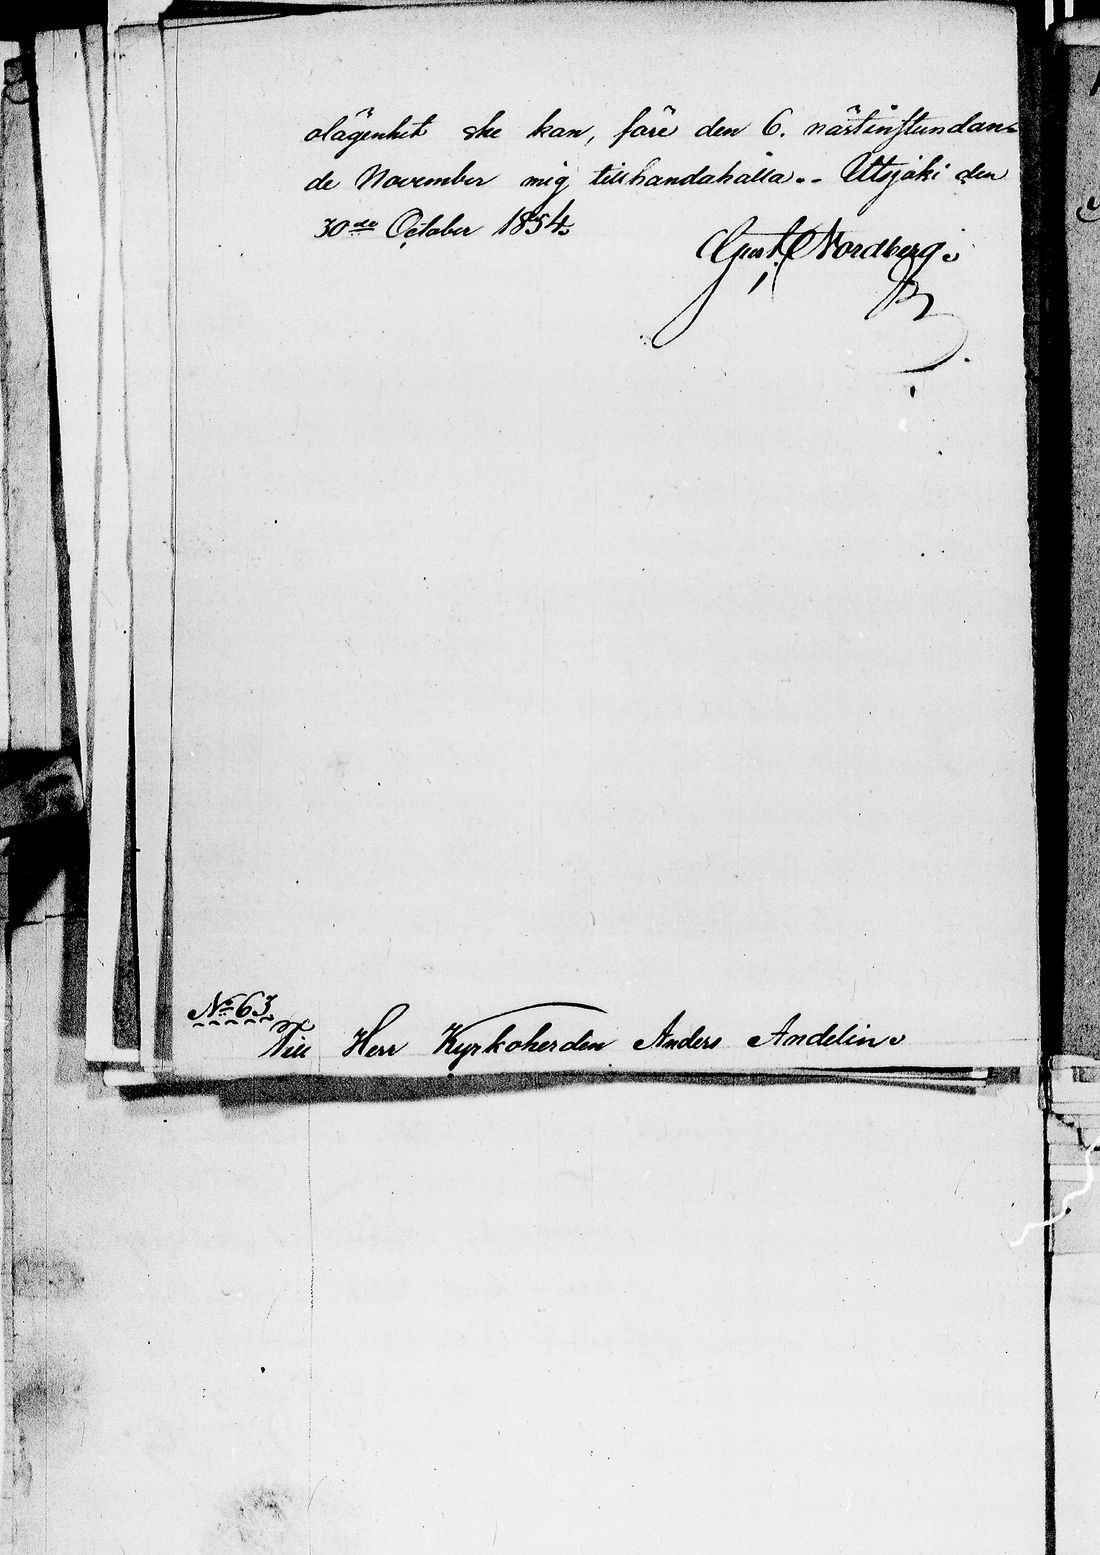 olägenhet ske kan, före den 6. nästinstundan-
de November mig tillhandahålla.- Utsjoki den
30de October 1854.
Gust. Nordberg.
No 63.
Till Herr Kyrkoherden Anders Andelin.